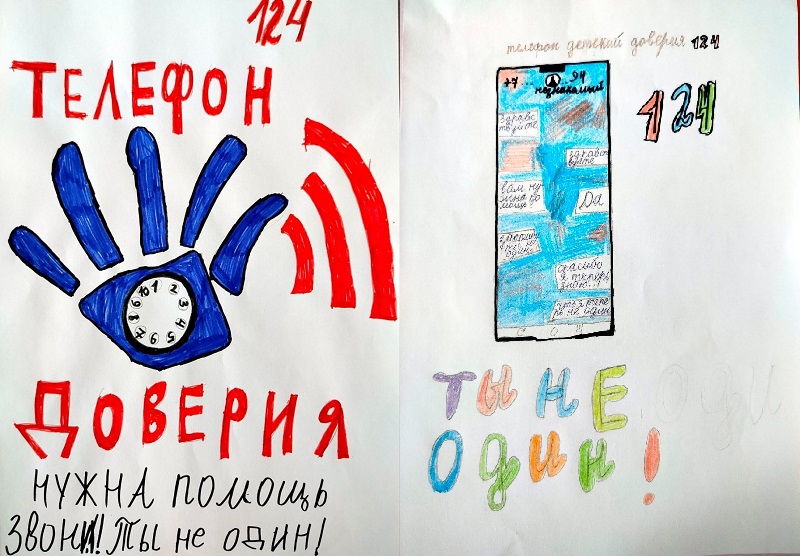 124
ТЕЛЕФОН
1
2
3
4
5
6
7
8
9
10
ДОВЕРИЯ
НУЖНА ПОМОЩЬ
ЗВОНИ! ТЫ НЕ ОДИН!
телефон детский доверия 124
+7 ... 94
незнакомый
124
здравс
твуйте
здравст
вуйте
вам ну
жна по
мощь?
Да
спасибо
я теперь
знаю..!
ТЫ НЕ оди
Один!